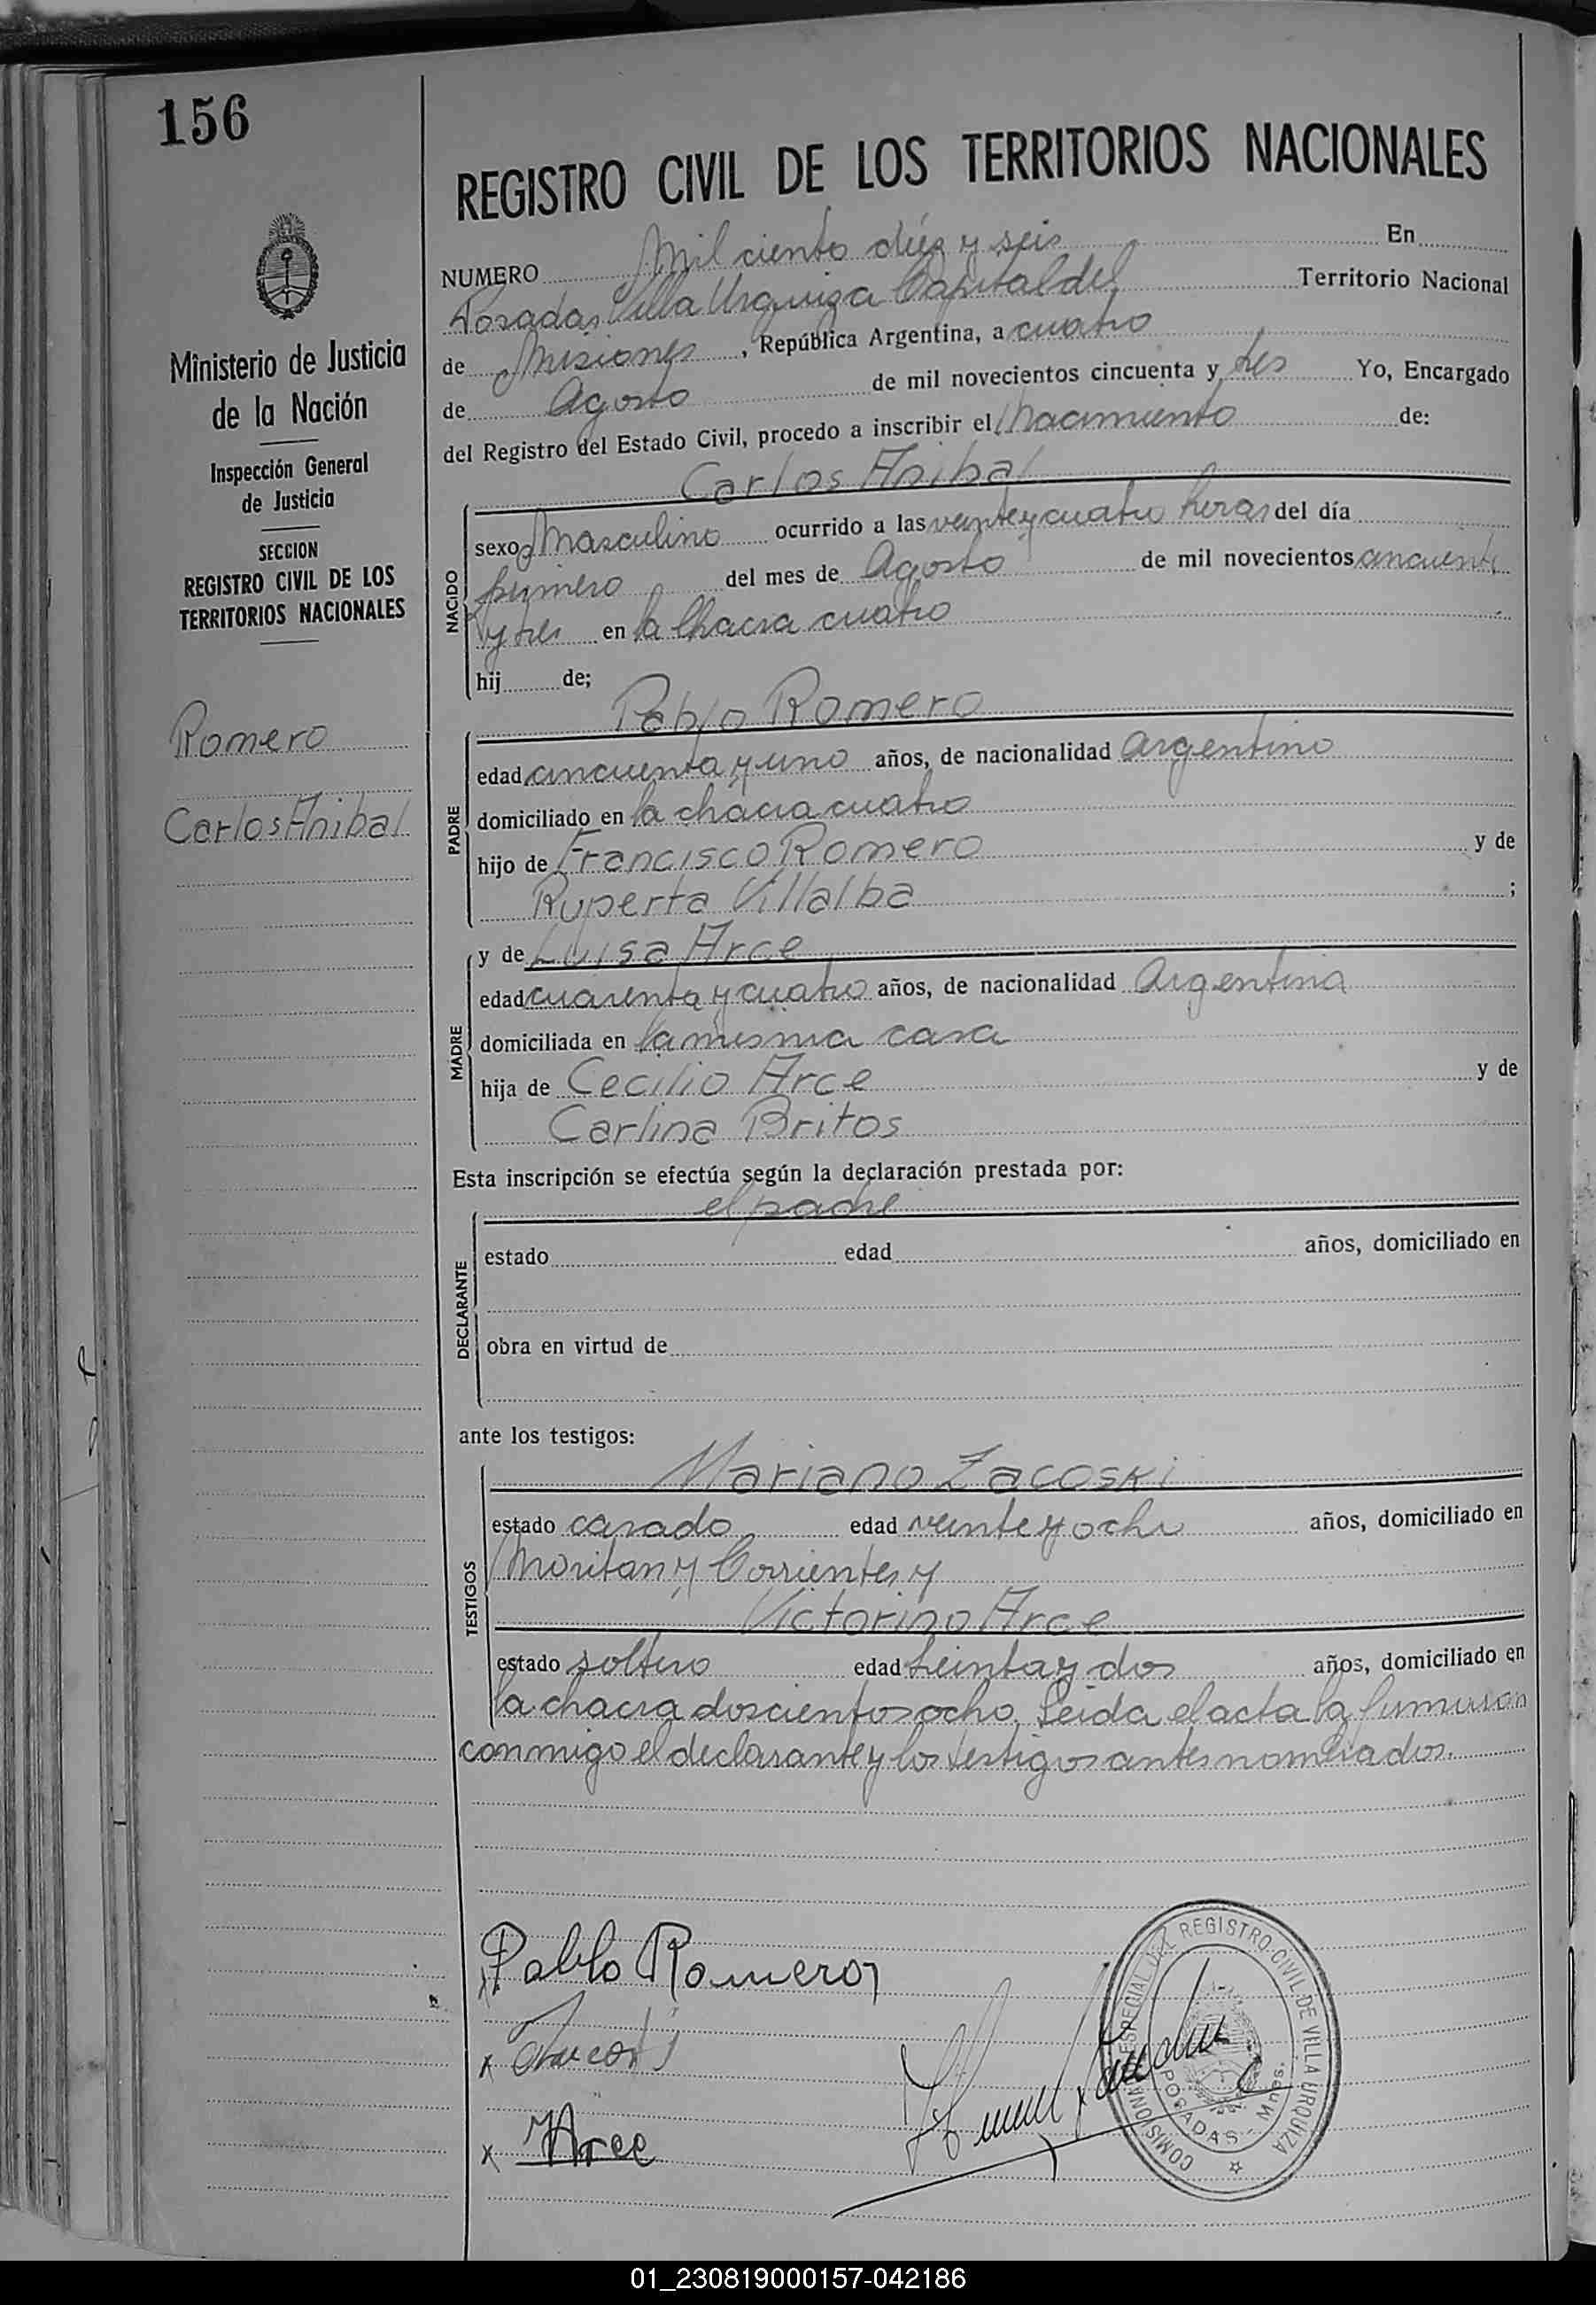 156
REGISTRO CIVIL DE LOS TERRITORIOS NACIONALES
Ministerio de Justicia
de la Nación
Inspección General
de Justicia
SECCION
REGISTRO CIVIL DE LOS
TERRITORIOS NACIONALES
Romero
Carlos Anibal
NUMERO Mil ciento diez y seis En
Posadas Villa Urquiza Capital del Territorio Nacional
de Misiones, República Argentina, a cuatro
de Agosto de mil novecientos cincuenta y tres Yo, Encargado
del Registro del Estado Civil, procedo a inscribir el Nacimiento de:
Carlos Anibal
NACIDO
sexo Masculino ocurrido a las veinte y cuatro horas del día
primero del mes de Agosto de mil novecientos cincuenta
y tres en la Chacra cuatro
hij de;
Pablo Romero
PADRE
edad cincuenta y uno años, de nacionalidad Argentino
domiciliado en la chacra cuatro
hijo de Francisco Romero y de
Ruperta Villalba ;
MADRE
y de Luisa Arce
edad cuarenta y cuatro años, de nacionalidad Argentina
domiciliada en la misma casa
hija de Cecilio Arce y de
Carlina Britos
Esta inscripción se efectúa según la declaración prestada por:
el padre
DECLARANTE
estado edad años, domiciliado en
obra en virtud de
ante los testigos:
Mariano Zacoski
TESTIGOS
estado casado edad veinte y ocho años, domiciliado en
Moritan y Corrientes y
Victorino Arce
estado soltero edad treinta y dos años, domiciliado en
la chacra doscientos ocho. Leida el acta la firmaron
conmigo el declarante y los testigos antes nombrados.
Pablo Romero
x
x Arce
COMISION ESPECIAL DEL REGISTRO CIVIL DE VILLA URQUIZA
POSADAS - Mnes.
01_230819000157-042186